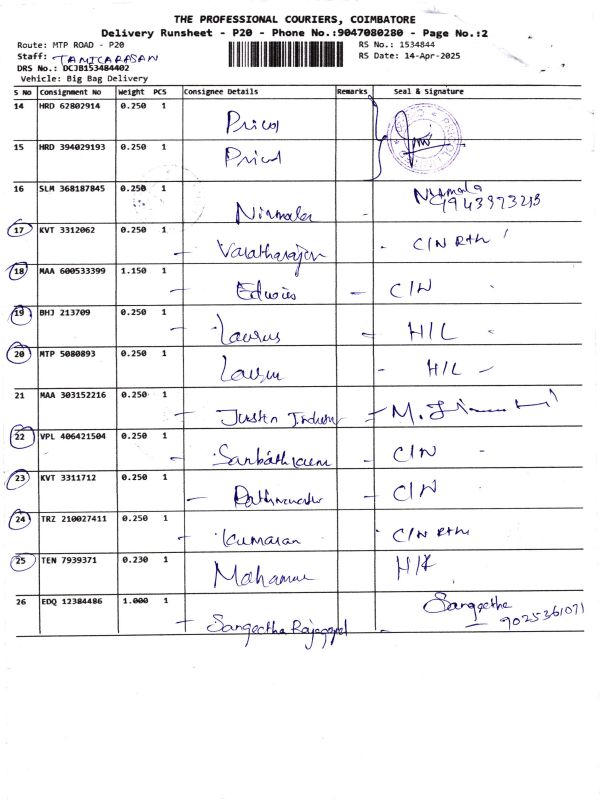 THE PROFESSIONAL COURIERS, COIMBATORE
Delivery Runsheet - P20 - Phone No.:9047080280 - Page No.:2
Route: MTP ROAD - P20 RS No.: 1534844
Staff: TAMICARASAN RS Date: 14-Apr-2025
DRS No.: DCJB153484402
Vehicle: Big Bag Delivery
S No Consignment No Weight PCS Consignee Details Remarks Seal & Signature
14 HRD 62802914 0.250 1 Pricol
15 HRD 394029193 0.250 1 Pricol
16 SLM 368187845 0.250 1 Nirmala - Nirmala
9943973213
17 KVT 3312062 0.250 1 - Varatharajan - C/N Rtn
18 MAA 600533399 1.150 1 - - C/N
19 BHJ 213709 0.250 1 - Laurus - H/L
20 MTP 5080893 0.250 1 - H/L -
21 MAA 303152216 0.250 1 - Justin Industry -
22 VPL 406421504 0.250 1 - - C/N
23 KVT 3311712 0.250 1 - - C/N
24 TRZ 210027411 0.250 1 - Kumaran C/N Rtn
25 TEN 7939371 0.230 1
26 EDQ 12384486 1.000 1 - Sangeetha Rajagopal - Sangeetha
9025361071